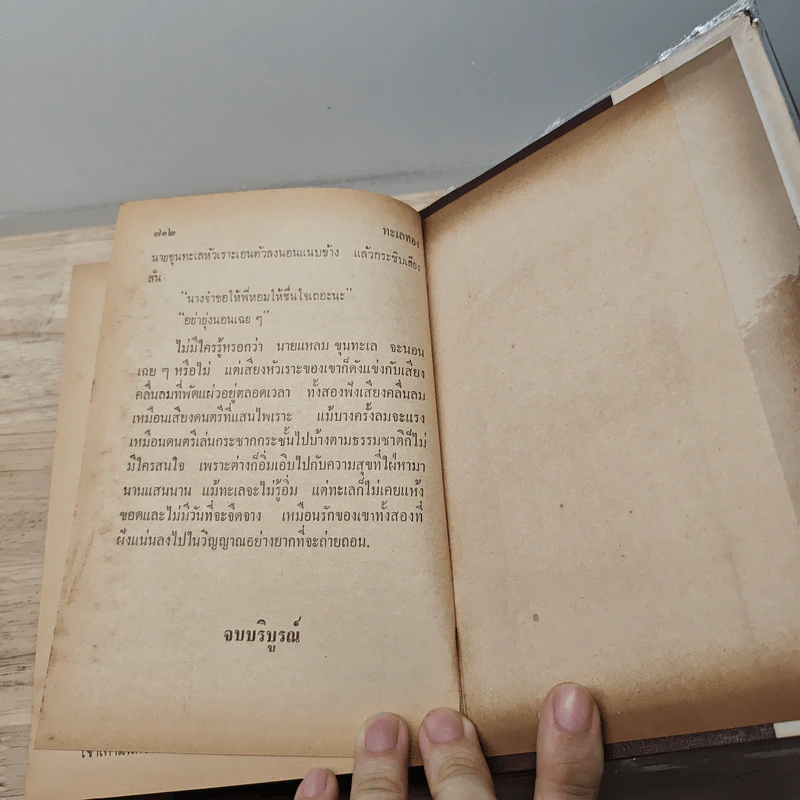 ๗๓๒ ทะเลทอง
นายขุนทะเลหัวเราะเอนตัวลงนอนแนบข้าง แล้วกระซิบเสียง
สั่น
“นางจ๋าขอให้พี่หอมให้ชื่นใจเถอะนะ”
“อย่ายุ่งนอนเฉย ๆ”
ไม่มีใครรู้หรอกว่า นายแหลม ขุนทะเล จะนอน
เฉย ๆ หรือไม่ แต่เสียงหัวเราะของเขาก็ดังแข่งกับเสียง
คลื่นลมที่พัดแผ่วอยู่ตลอดเวลา ทั้งสองฟังเสียงคลื่นลม
เหมือนเสียงดนตรีที่แสนไพเราะ แม้บางครั้งลมจะแรง
เหมือนดนตรีเล่นกระชากกระชั้นไปบ้างตามธรรมชาติก็ไม่
มีใครสนใจ เพราะต่างก็อิ่มเอิบไปกับความสุขที่ใฝ่หามา
นานแสนนาน แม้ทะเลจะไม่รู้อิ่ม แต่ทะเลก็ไม่เคยแห้ง
ขอดและไม่มีวันที่จะจืดจาง เหมือนรักของเขาทั้งสองที่
ฝังแน่นลงไปในวิญญาณอย่างยากที่จะถ่ายถอน.
จบบริบูรณ์